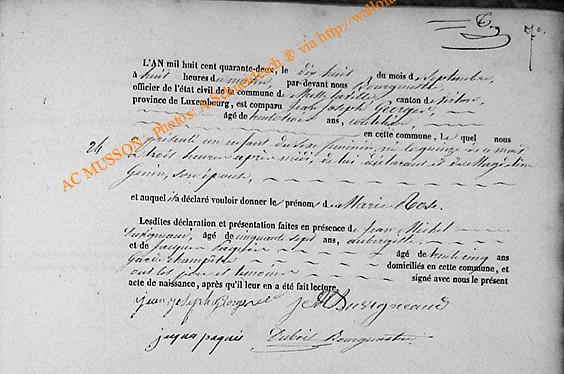 7e
L'AN mil huit cent quarante-deux, le dix huit du mois de Septembre
à huit heures du matin, par-devant nous Bourgmestre
officier de l'état civil de la commune de canton de
province de Luxembourg, est comparu Jean Joseph Georges
âgé de trente trois ans,
en cette commune, Lequel nous
24 a présenté un enfant du sexe féminin, né le quinze de ce mois
à trois heures après midi, de lui déclarant et de
son épouse,
et auquel il a déclaré vouloir donner le prénom de Marie Rose.
Lesdites déclaration et présentation faites en présence de Jean Michel
Duvigneaud, âgé de cinquante sept ans, aubergiste
et de Jacques Paquis âgé de trente cinq ans
Garde champêtre domiciliés en cette commune, et
ont les père et témoins signé avec nous le présent
acte de naissance, après qu'il leur en a été fait lecture.
jean joseph Georges JM Duvigneaud
jacque paquis Dubois Bourgmestre
AC MUSSON - Photos: A. © via http://wallon